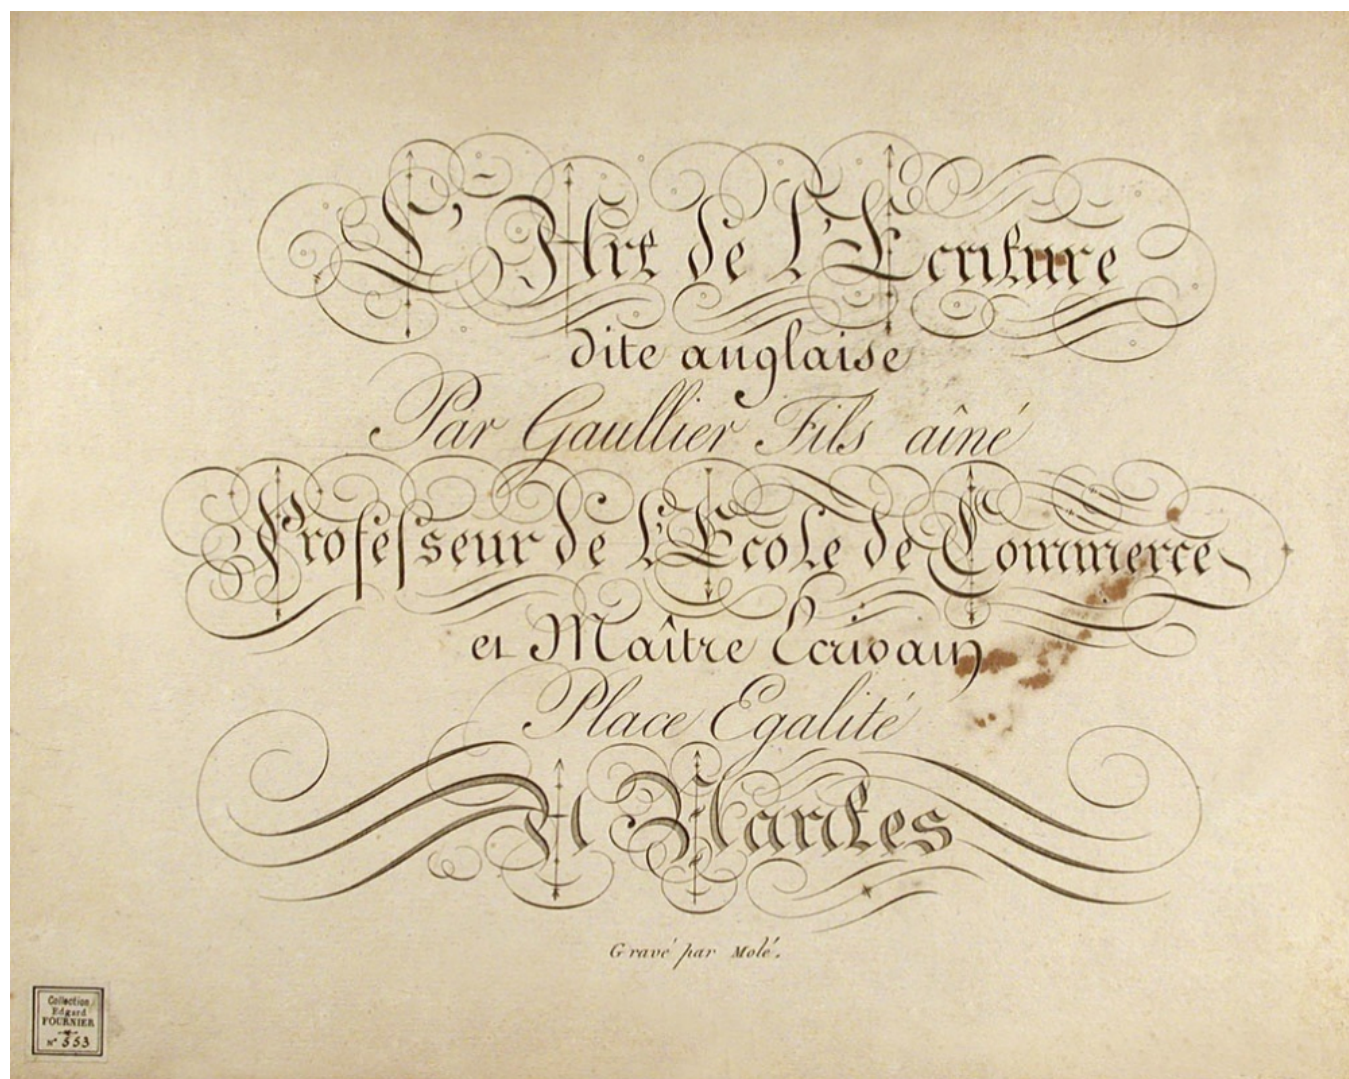 L'Art de l'Ecriture
dite anglaise
Par Gaullier Fils aîné
Professeur de l'Ecole de Commerce
et Maître Ecrivain
Place Egalité
A Nantes
Gravé par Molé.
Collection
Edgard
FOURNIER
N° 553